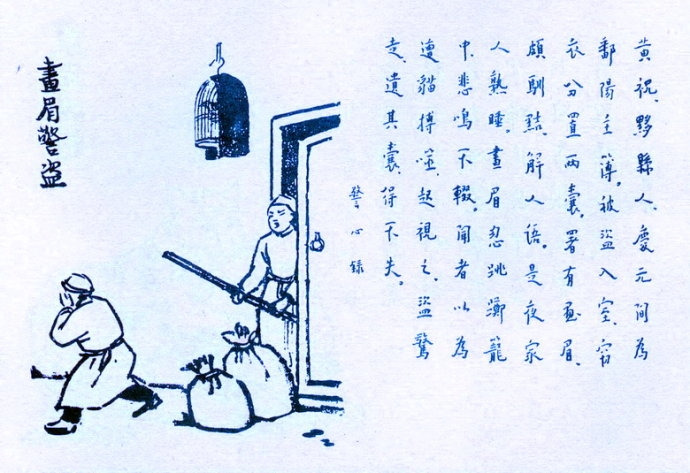 黃祝、黟縣人、慶元間為
鄱陽主簿。被盜入室、窃
衣分置兩囊。署有畫眉、
頗馴黠、解人語。是夜家
人熟睡。畫眉忽跳擲籠
中、悲鳴不輟。聞者以為
遭貓搏噬、起視之、盜驚
走、遺其囊、得不失。
警心錄
畫眉警盜